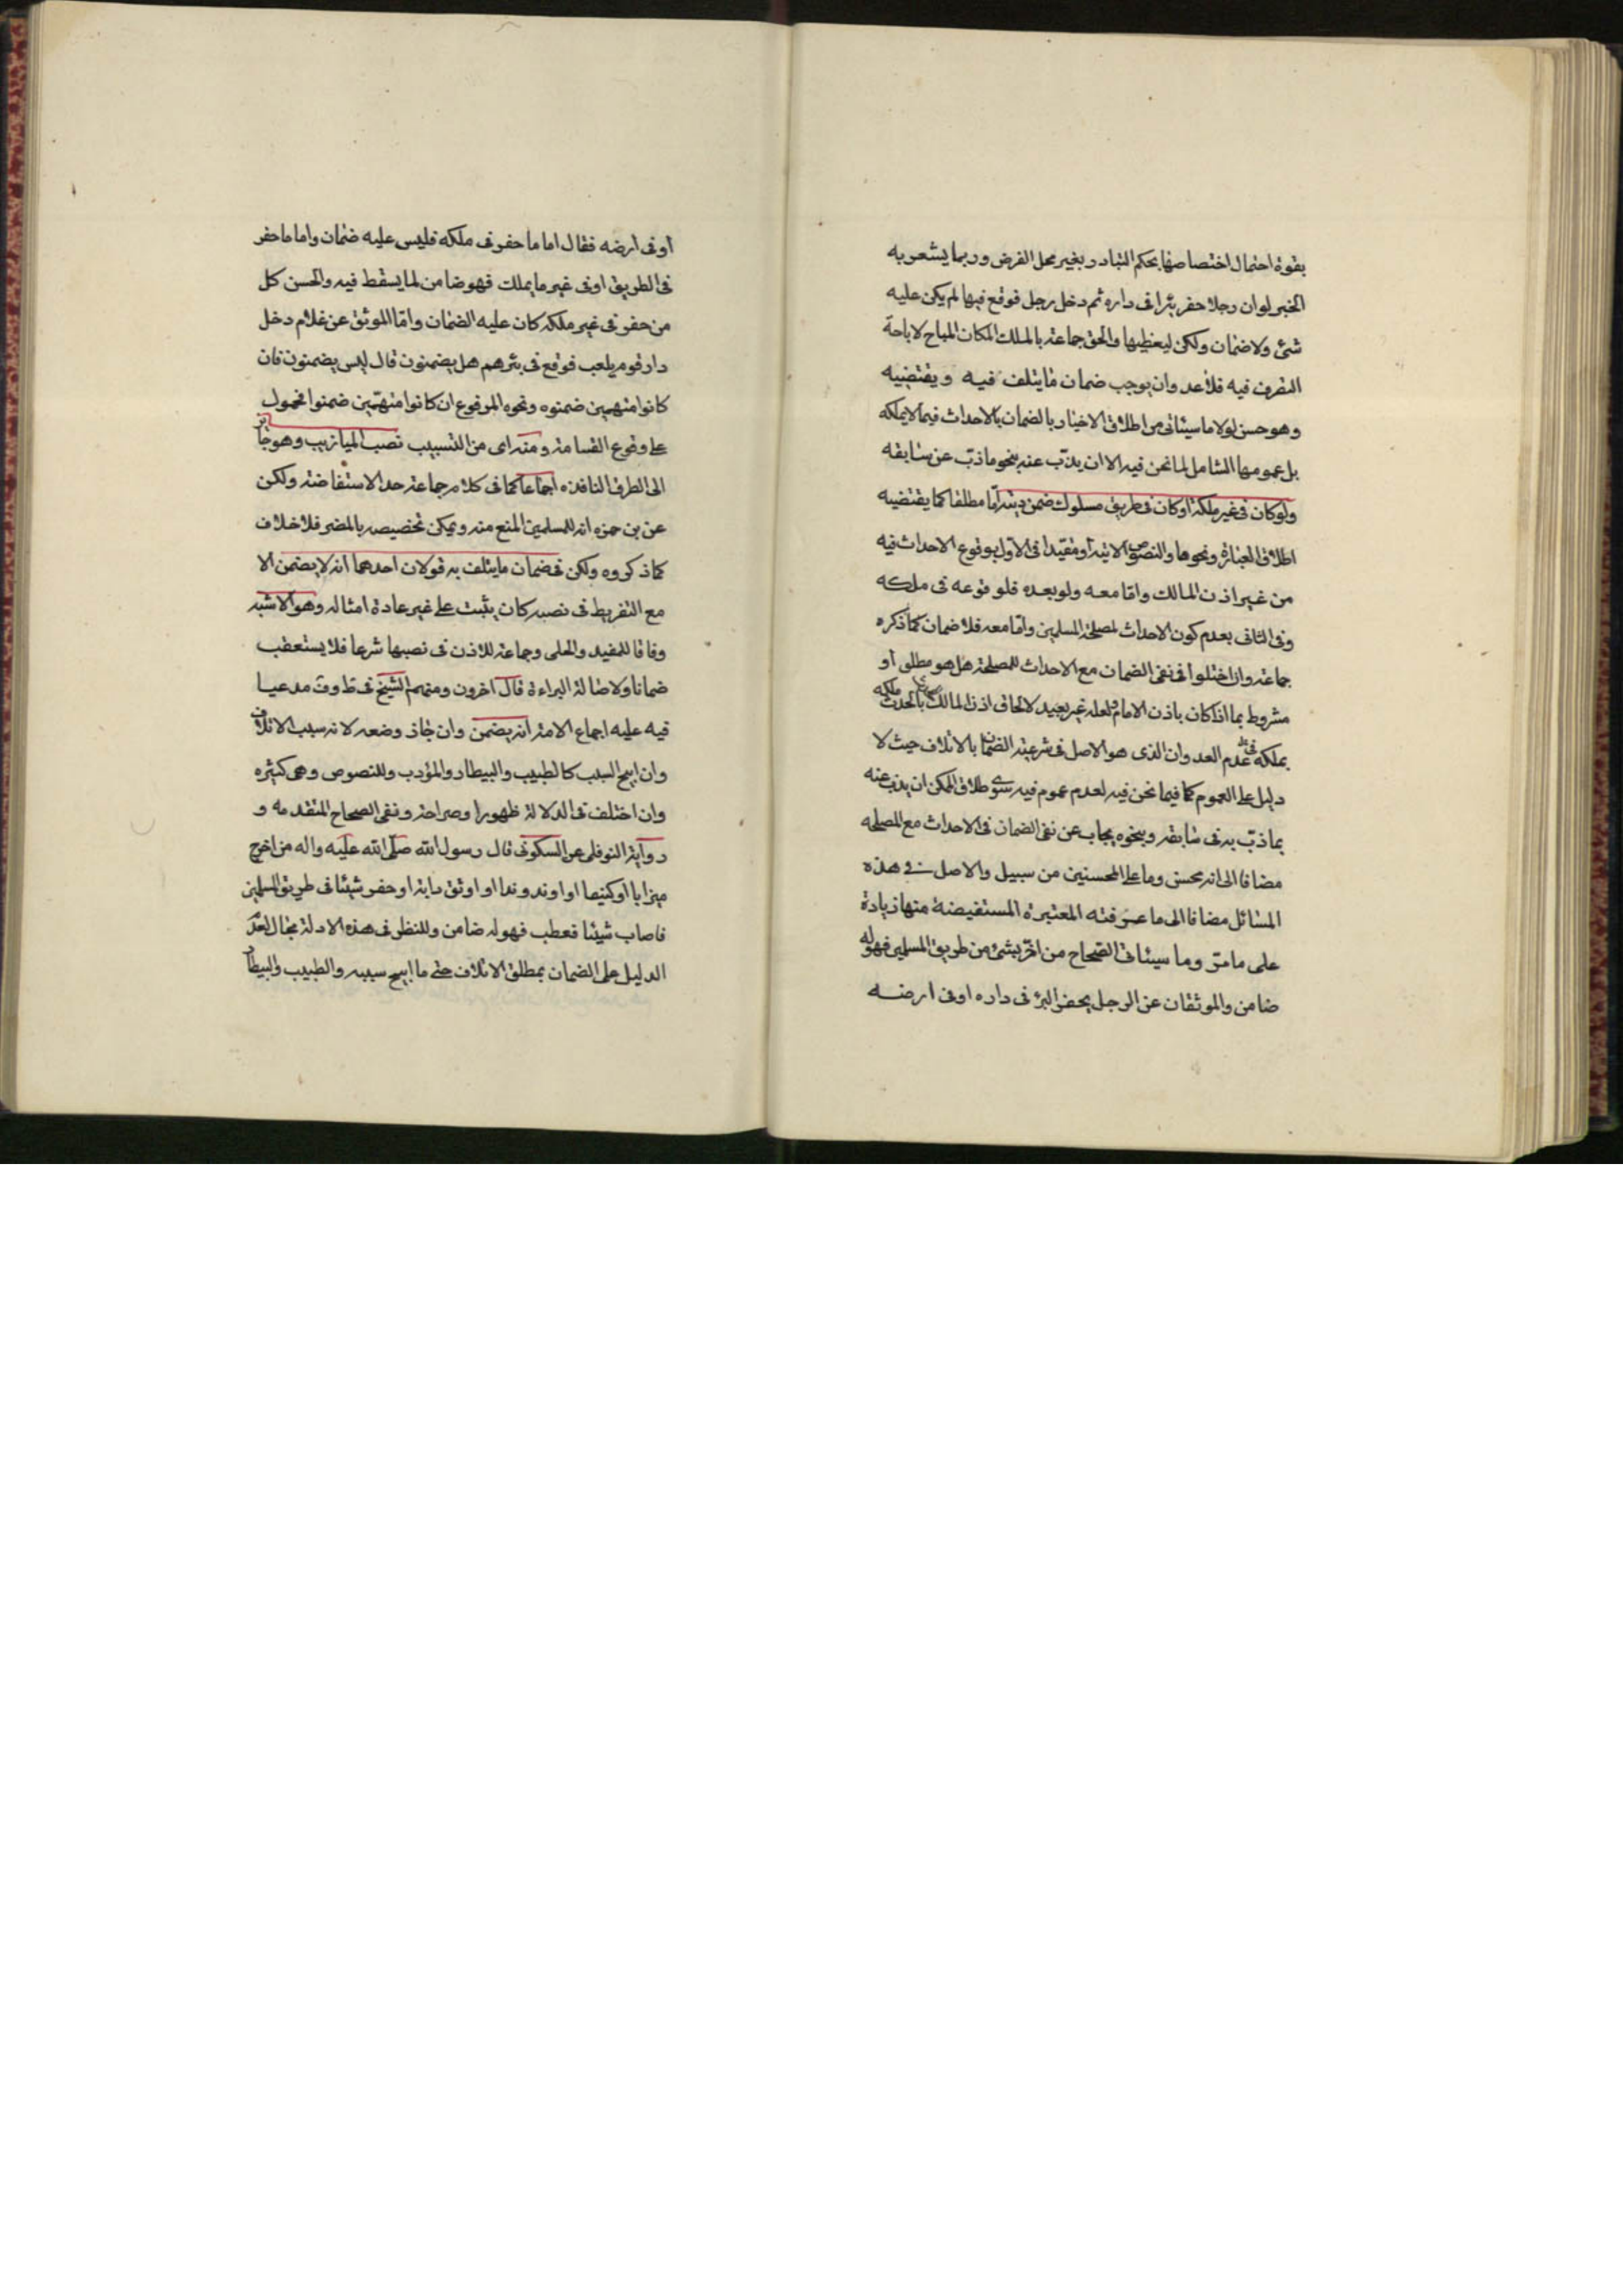 بقوة احتمال اختصاصها بحكم التبادر بغير محل الفرض وربما يشعر به
الخبر لو ان رجلا حفر بئرا فى داره ثم دخل رجل فوقع فيها لم يكن عليه
شئ ولا ضمان ولكن ليغطيها والحق جماعة بالملك المكان المباح لاباحة
التصرف فيه فلا عدوان يوجب ضمان ما يتلف فيه ويقتضيه
وهو حسن لولا ما سيئاتى من اطلاق الاخبار بالضمان بالاحداث فيما لا يملكه
بل عمومها الشامل لما نحن فيه الا ان يذب عنه بنحو ما ذب عن سابقه
ولو كان فى غير ملكه او كان فى طريق مسلوك ضمن ديته اما مطلقا كما يقتضيه
اطلاق العبارة ونحوها والنصوص الاتية او مقيدا فى الاول بوقوع الاحداث فيه
من غير اذن المالك واما معه ولو بعده فلو قوعه فى ملكه
وفى الثانى بعدم كون الاحداث لمصلحة المسلمين واما معه فلا ضمان كما ذكره
جماعة وان اختلوا فى نفى الضمان مع الاحداث للمصلحة هل هو مطلق او
مشروط بما اذا كان باذن الامام ولعله غير بعيد لالحاق اذن المالك بالحدث
بملكه فى عدم العدوان الذى هو الاصل فى شرعية الضمان بالاتلاف حيث لا
دليل على العموم كما فيما نحن فيه لعدم عموم فيه سوى طلاق الممكن ان يذب عنه
بما ذب به فى سابقه وبنحوه يجاب عن نفى الضمان فى الاحداث مع المصلحه
مضافا الى انه محسن وما على المحسنين من سبيل والاصل فى هذه
المسائل مضافا الى ما عرفته المعتبرة المستفيضة منها زيادة
على ما مر وما سيئاتى الصحاح من اضر بشئ من طريق المسلمين فهو له
ضامن والموثقان عن الرجل يحفر البئر فى داره او فى ارضه
او فى ارضه فقال اما ما حفر فى ملكه فليس عليه ضمان واما ما حفر
فى الطريق او فى غير ما يملك فهو ضامن لما يسقط فيه والحسن كل
من حفر فى غير ملكه كان عليه الضمان واما الموثق عن غلام دخل
دار قوم يلعب فوقع فى بئرهم هل يضمنون قال ليس يضمنون فان
كانوا متهمين ضمنوه ونحوه المرفوع ان كانوا متهمين ضمنوا فمحمول
على وقوع القسامة ومنه اى من التسبيب نصب الميازيب وهو جائز
الى الطرق النافذه اجماعا كما فى كلام جماعة حد الاستفاضة ولكن
عن بن حمزه انه للمسلمين المنع منه ويمكن تخصيصه بالمضر فلا خلاف
كما ذكروه ولكن فى ضمان ما يتلف به قولان احدهما انه لا يضمن الا
مع التفريط فى نصبه كان يثبت على غير عادة امثاله وهو الاشبه
وفاقا للمفيد والحلى وجماعة للاذن فى نصبها شرعا فلا يستعقب
ضمانا ولاصالة البراءة قال اخرون ومنهم الشيخ فى ط وف مدعيا
فيه عليه اجماع الامة انه يضمن وان جاز وضعه لانه سبب الاتلاف
وان ابيح السبب كالطبيب والبيطار والمؤدب وللنصوص وهى كثيره
وان اختلف فى الدلالة ظهورا وصراحة ونفى الصحاح المتقدمه و
رواية النوفلى عن السكونى قال رسول الله صلى الله عليه واله من اخرج
ميزابا او كنيفا او اوتد وتدا او اوثق دابة او حفر شيئا فى طريق المسلمين
فاصاب شيئا فعطب فهو له ضامن وللنظر فى هذه الادلة مجال لعدم
الدليل على الضمان بمطلق الاتلاف حتى ما ابيح سببه والطبيب والبيطار